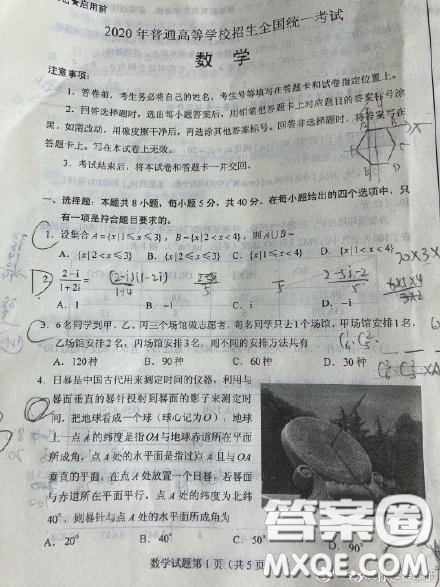 启用前
2020 年普通高等学校招生全国统一考试
数 学
注意事项：
1．答卷前，考生务必将自己的姓名、考生号等填写在答题卡和试卷指定位置上。
2．回答选择题时，选出每小题答案后，用铅笔把答题卡上对应题目的答案标号涂
黑。如需改动，用橡皮擦干净后，再选涂其他答案标号。回答非选择题时，将答案写在
答题卡上。写在本试卷上无效。
3．考试结束后，将本试卷和答题卡一并交回。
一、选择题：本题共 8 小题，每小题 5 分，共 40 分。在每小题给出的四个选项中，只
有一项是符合题目要求的。
1. 设集合 A={x|1≤x≤3}，B={x|2<x<4}，则 A∪B=
A. {x|2<x≤3} B. {x|2≤x≤3} C. {x|1≤x<4} D. {x|1<x<4}
2. (2-i)/(1+2i) = (2-i)(1-2i)/(1+4) 2-5i-2/5
A. 1 B. -1 C. i D. -i
6×5×4
3×2
3. 6 名同学到甲、乙、丙三个场馆做志愿者，每名同学只去1个场馆，甲场馆安排1名，
乙场馆安排2名，丙场馆安排3名，则不同的安排方法共有
A. 120种 B. 90种 C. 60种 D. 30种
4. 日晷是中国古代用来测定时间的仪器，利用与
晷面垂直的晷针投射到晷面的影子来测定时
间．把地球看成一个球（球心记为O），地球
上一点A的纬度是指OA与地球赤道所在平面
所成角，点A处的水平面是指过点A且与OA
垂直的平面．在点A处放置一个日晷，若晷面
与赤道所在平面平行，点A处的纬度为北纬
40°，则晷针与点A处的水平面所成角为
A. 20° B. 40° C. 50° D. 90°
数学试题第 1 页（共 5 页
答案圈
MXQE.COM